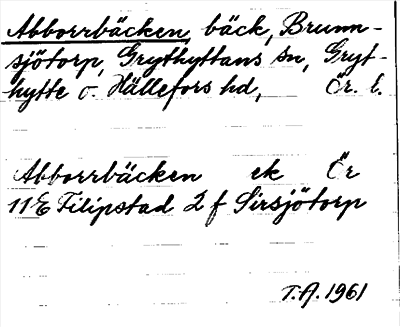 Abborrbäcken, bäck, Brunn-
sjötorp, Grythyttans sn, Gryt-
hytte o. Hällefors hd, Ör. l.
Abborrbäcken ek Ör
11E Filipstad 2 f Sirsjötorp
T.A. 1961